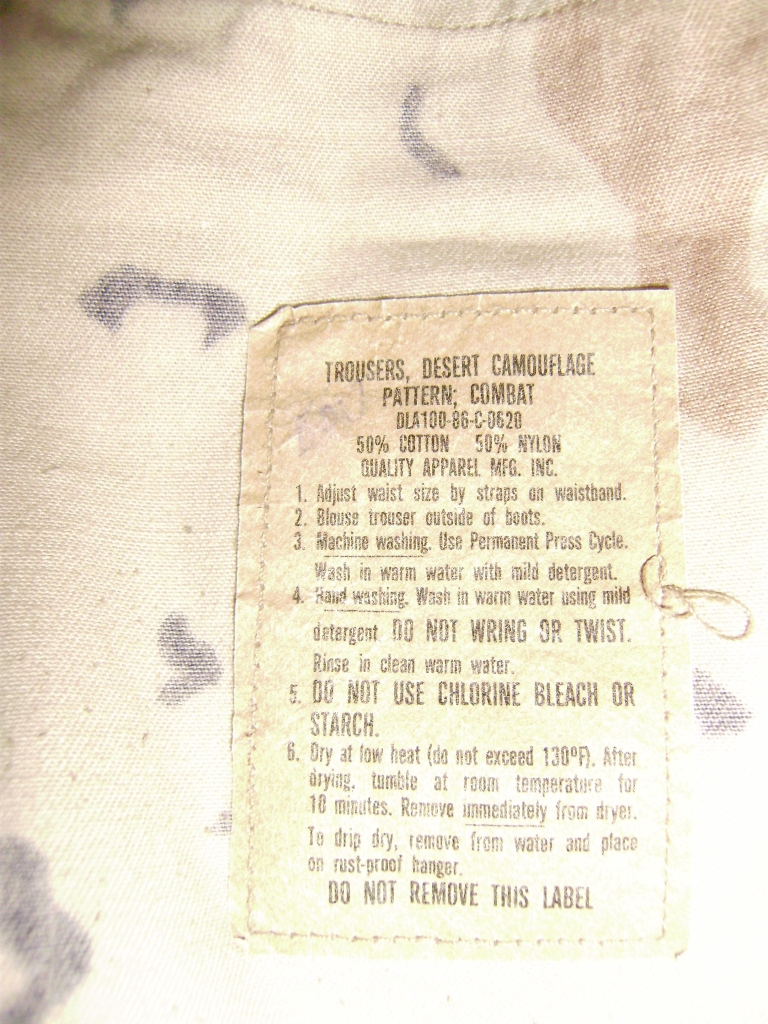 TROUSERS, DESERT CAMOUFLAGE
PATTERN; COMBAT
DLA100-86-C-0620
50% COTTON 50% NYLON
QUALITY APPAREL MFG. INC.
1. Adjust waist size by straps on waistband.
2. Blouse trouser outside of boots.
3. Machine washing. Use Permanent Press Cycle.
Wash in warm water with mild detergent.
4. Hand washing. Wash in warm water using mild
detergent. DO NOT WRING OR TWIST.
Rinse in clean warm water.
5. DO NOT USE CHLORINE BLEACH OR
STARCH.
6. Dry at low heat (do not exceed 130ºF). After
drying, tumble at room temperature for
10 minutes. Remove unmediately from dryer.
To drip dry, remove from water and place
on rust-proof hanger.
DO NOT REMOVE THIS LABEL